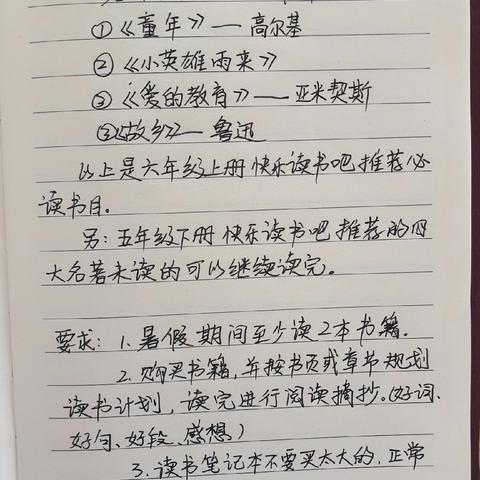 ①《童年》——高尔基
②《小英雄雨来》
③《爱的教育》——亚米契斯
③《故乡》——鲁迅
以上是六年级上册快乐读书吧推荐必
读书目。
另：五年级下册快乐读书吧推荐的四
大名著未读的可以继续读完。
要求：1.暑假期间至少读2本书籍.
2.购买书籍,并按书页或章节规划
读书计划，读完进行阅读摘抄。(好词、
好句、好段、感想)
3.读书笔记本不要买太大的，正常